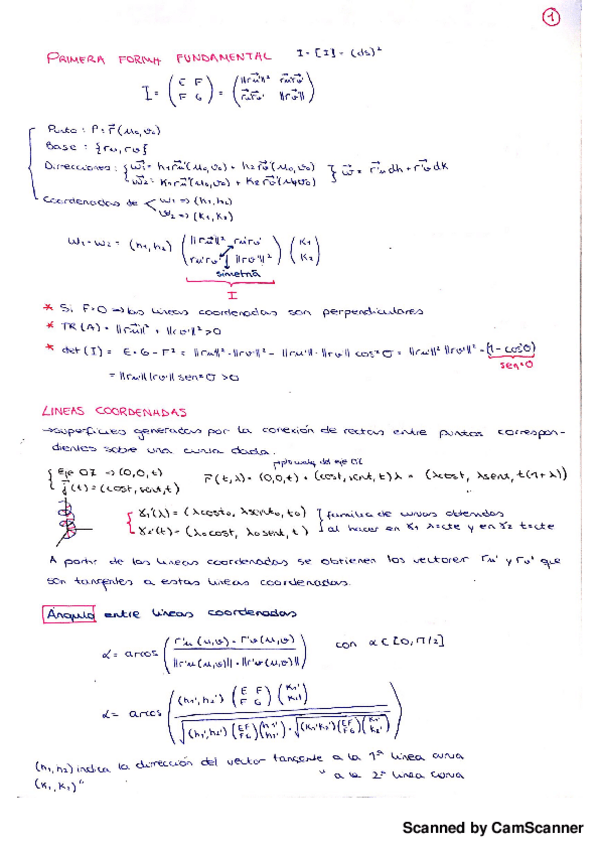 1
PRIMERA FORMA FUNDAMENTAL I = [I] = (ds)²
I = (E F / F G) = (||r⃗u'||² r⃗u'r⃗v' / r⃗u'r⃗v' ||r⃗v'||)
Punto : P = r⃗(u₀,v₀)
Base : {ru, rv}
Direcciones : { w⃗₁ = h₁r⃗u'(u₀,v₀) + h₂r⃗v'(u₀,v₀) } w⃗ = r⃗'u dh + r⃗'v dk
w⃗₂ = k₁r⃗u'(u₀,v₀) + k₂r⃗v'(u₀,v₀)
Coordenadas de < w₁ => (h₁,h₂)
w₂ => (k₁,k₂)
w₁·w₂ = (h₁,h₂) (||r⃗u'||² ru'rv' / ru'rv' ||rv'||²) (k₁ / k₂)
simetría
I
* Si F=0 → las líneas coordenadas son perpendiculares
* TR(A) = ||r⃗u'||² + ||rv'||² > 0
* det(I) = E·G - F² = ||ru'||²·||rv'||² - ||ru'||·||rv'|| cos²σ = ||ru'||² ||rv'||² · (1 - cos²σ)
sen²σ
= ||ru'|| ||rv'|| sen²σ > 0
LINEAS COORDENADAS
→ superficies generadas por la conexión de rectas entre puntos correspon-
dientes sobre una curva dada.
del eje OZ
{ Eje OZ → (0,0,t) r⃗(t,λ) = (0,0,t) + (cost, sent, t)λ = (λcost, λsent, t(1+λ))
(t) = (cost, sent, t)
{ γ₁(λ) = (λcost₀, λsent₀, t₀) } familia de curvas obtenidas
γ₂(t) = (λ₀cost, λ₀sent, t) al hacer en γ₁ λ=cte y en γ₂ t=cte
A partir de las líneas coordenadas se obtienen los vectores ru' y rv' que
son tangentes a estas líneas coordenadas.
Ángulo entre líneas coordenadas
α = arcos (r'u(u,v) · r'v(u,v) / ||r'u(u,v)|| · ||r'v(u,v)||) con α ∈ [0, π/2]
α = arcos ((h₁',h₂') (E F / F G) (k₁' / k₂') / √(h₁',h₂') (E F / F G) (h₁' / h₂') · √(k₁',k₂') (E F / F G) (k₁' / k₂'))
(h₁,h₂) indica la dirección del vector tangente a la 1ª línea curva
(k₁,k₂) " " a la 2ª línea curva
Scanned by CamScanner